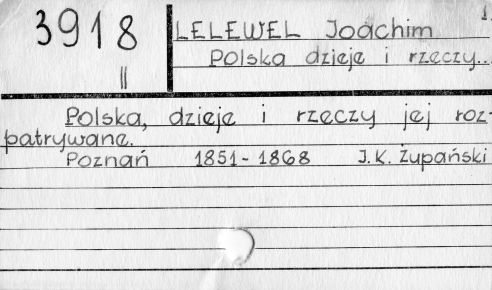 1.
3918
II
LELEWEL Joachim
Polska dzieje i rzeczy...
Polska, dzieje i rzeczy jej roz-
patrywane.
Poznań 1851-1868 J.K. Żupański